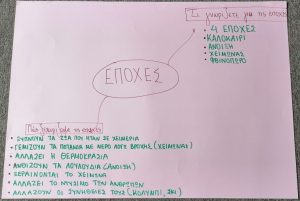 Τι γνωρίζετε για τις εποχές
• 4 ΕΠΟΧΕΣ
• ΚΑΛΟΚΑΙΡΙ
• ΑΝΟΙΞΗ
• ΧΕΙΜΩΝΑΣ
• ΦΘΙΝΟΠΩΡΟ
ΕΠΟΧΕΣ
Πώς τις εποχές
• ΞΥΠΝΟΥΝ ΤΑ ΖΩΑ ΠΟΥ ΗΤΑΝ ΣΕ ΧΕΙΜΕΡΙΑ
• ΓΕΜΙΖΟΥΝ ΤΑ ΠΟΤΑΜΙΑ ΜΕ ΝΕΡΟ ΛΟΓΩ ΒΡΟΧΗΣ (ΧΕΙΜΩΝΑΣ)
• ΑΛΛΑΖΕΙ Η ΘΕΡΜΟΚΡΑΣΙΑ
• ΑΝΘΙΖΟΥΝ ΤΑ ΛΟΥΛΟΥΔΙΑ (ΑΝΟΙΞΗ)
• ΞΕΡΑΙΝΟΝΤΑΙ ΤΟ ΧΕΙΜΩΝΑ
• ΑΛΛΑΖΕΙ ΤΟ ΝΤΥΣΙΜΟ ΤΩΝ ΑΝΘΡΩΠΩΝ
• ΑΛΛΑΖΟΥΝ ΟΙ ΣΥΝΗΘΕΙΕΣ ΤΟΥΣ (ΚΟΛΥΜΠΙ, ΣΚΙ)